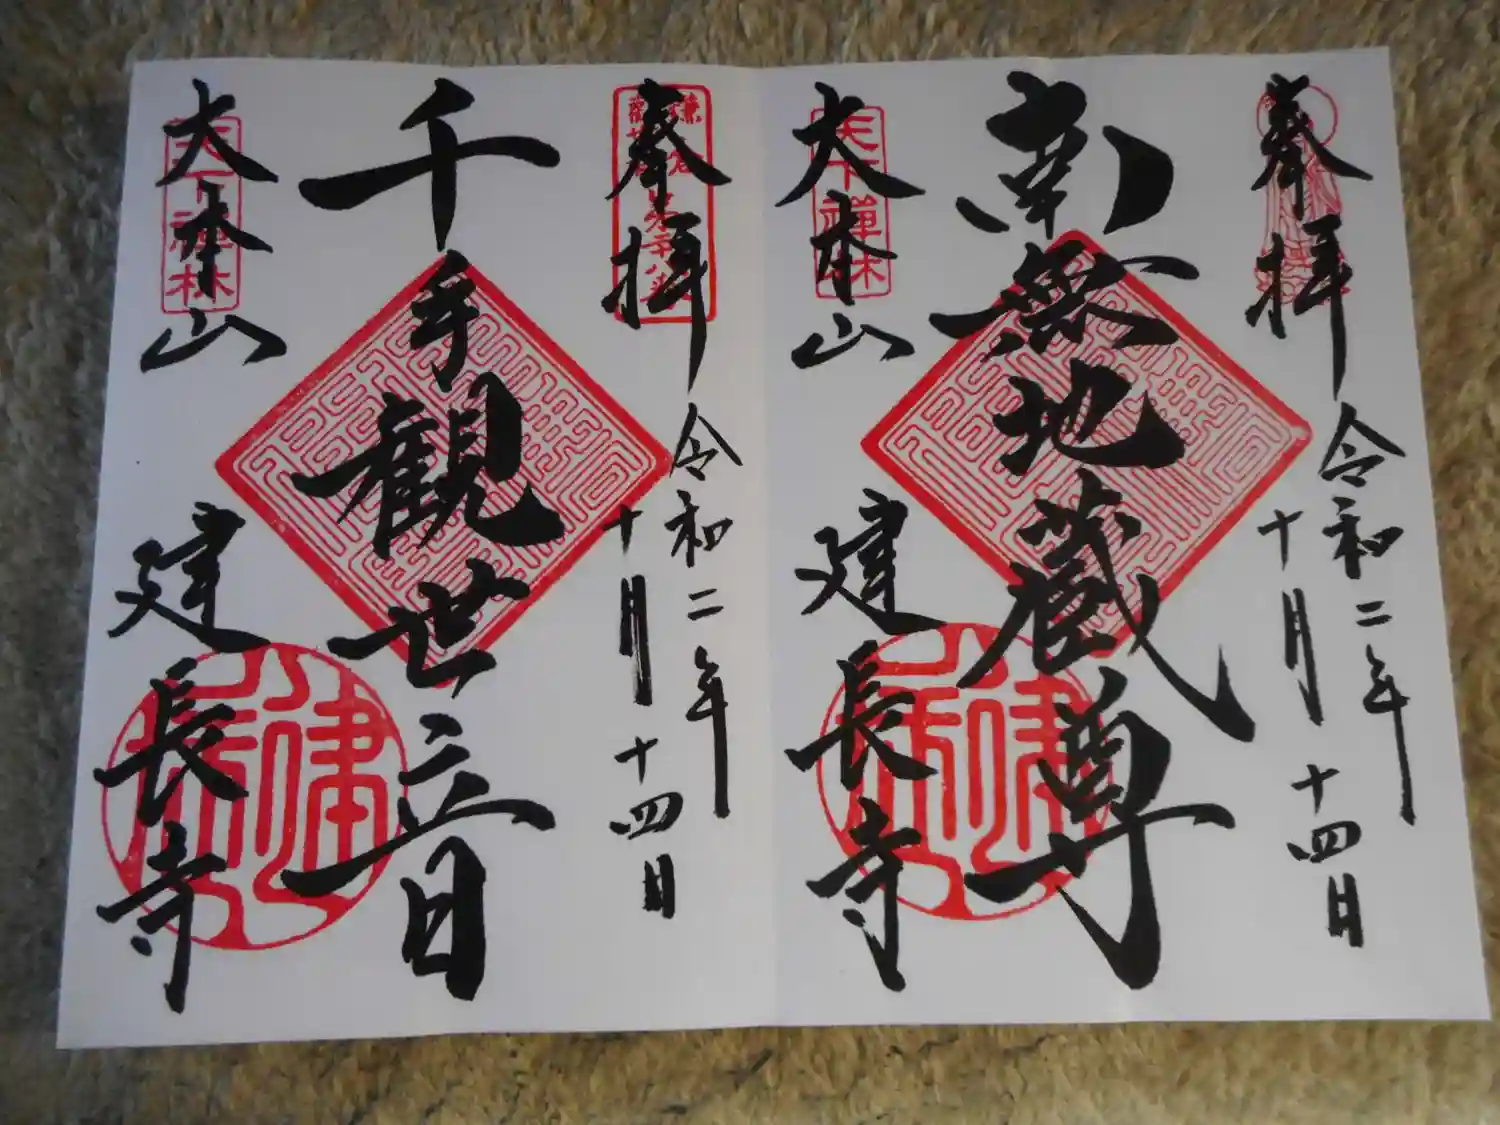 奉拝
令和二年
十月十四日
南無地蔵尊
大本山
天下禅林
建長寺
奉拝
令和二年
十月十四日
千手観世音
大本山
天下禅林
建長寺